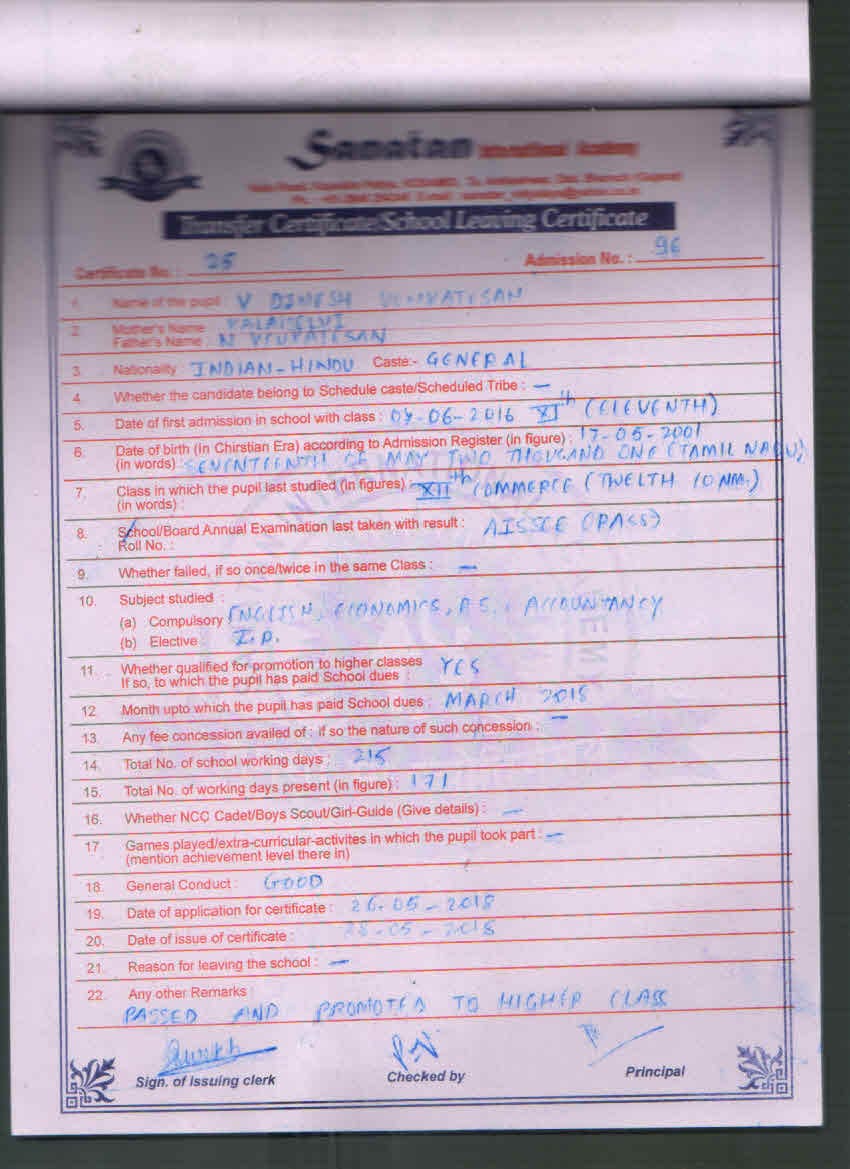 Sanatan International Academy
Transfer Certificate/School Leaving Certificate
Certificate No. : 25 Admission No. : 96
1. Name of the pupil : V DINESH VENKATESAN
2. Mother's Name
Father's Name :
3. Nationality : INDIAN - HINDU Caste:- GENERAL
4. Whether the candidate belong to Schedule caste/Scheduled Tribe : —
5. Date of first admission in school with class : 07-06-2016 XIth (ELEVENTH)
6. Date of birth (in Chirstian Era) according to Admission Register (in figure) : 17-05-2001
(in words) SEVENTEENTH OF MAY TWO THOUSAND ONE (TAMIL NADU)
7. Class in which the pupil last studied (in figures) : XIIth COMMERCE (TWELTH COMM.)
(in words) :
8. School/Board Annual Examination last taken with result : AISSCE (PASS)
Roll No. :
9. Whether failed, if so once/twice in the same Class : —
10. Subject studied :
(a) Compulsory ENGLISH, ECONOMICS, ACCOUNTANCY
(b) Elective I.P.
11. Whether qualified for promotion to higher classes YES
If so, to which the pupil has paid School dues :
12. Month upto which the pupil has paid School dues : MARCH 2018
13. Any fee concession availed of : if so the nature of such concession : —
14. Total No. of school working days : 215
15. Total No. of working days present (in figure) : 171
16. Whether NCC Cadet/Boys Scout/Girl-Guide (Give details) : —
17. Games played/extra-curricular-activites in which the pupil took part : —
(mention achievement level there in)
18. General Conduct : GOOD
19. Date of application for certificate : 26-05-2018
20. Date of issue of certificate : 28-05-2018
21. Reason for leaving the school : —
22. Any other Remarks :
PASSED AND PROMOTED TO HIGHER CLASS
Sign. of issuing clerk Checked by Principal